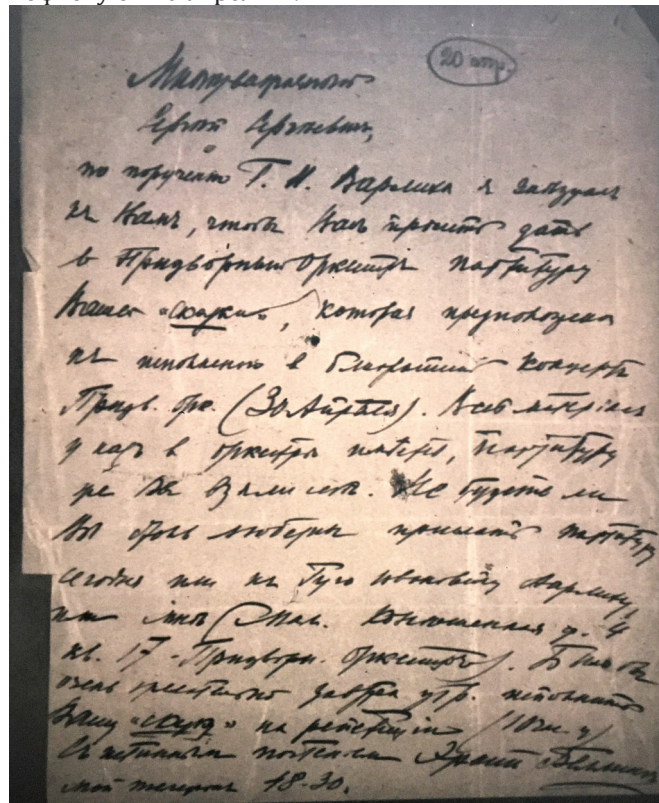 20 апр.
Многоуважаемый
Сергей Сергеевич,
по поручению Г. И. Варлиха я
къ Вамъ, чтобы Васъ просить дать
в Придворный Оркестръ партитуру
Вашей «Сказки», которая предположена
къ исполненію в ближайшій концертъ
Придв. орк. (30 Апрѣля). Весь матеріалъ
у насъ в оркестрѣ имѣется, партитуру
же Вы взяли себѣ. Не будете ли
Вы столь любезны прислать партитуру
сегодня или къ Гуго Ивановичу Варлиху,
или мнѣ (Мал. Конюшенная д. 4
кв. 17 - Придворн. Оркестръ). Было бы
очень завтра утр. исполнить
Вашу «сказку» на репетиціи (10 ч. у)
Съ истиннымъ почтеніемъ
мой телефонъ 18-30.